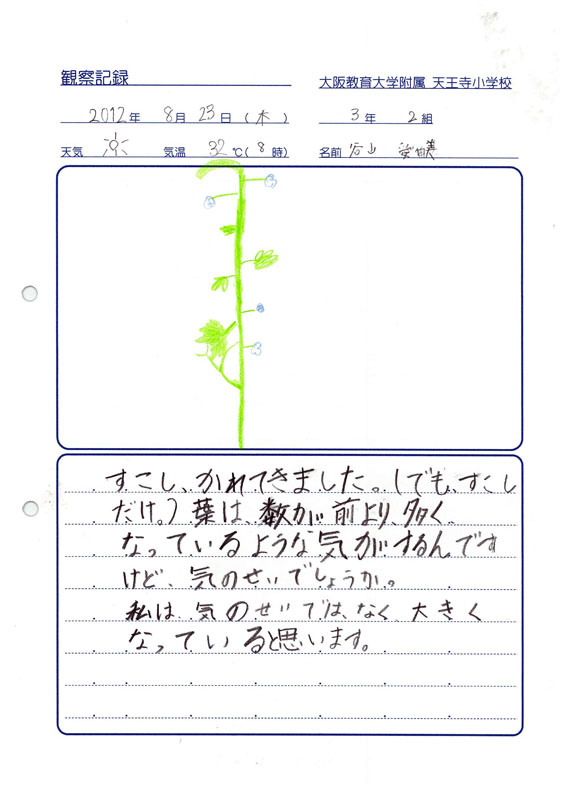 観察記録
大阪教育大学附属 天王寺小学校
2012年 8月 23日 (木)
3年 2組
天気 気温 32℃(8時)
名前 谷山 愛由美
すこし、かれてきました。(でも、すこし
だけ。) 葉は、数が前より、多く
なっているような気がするんです
けど、気のせいでしょうか。
私は、気のせいではなく、大きく
なっていると思います。